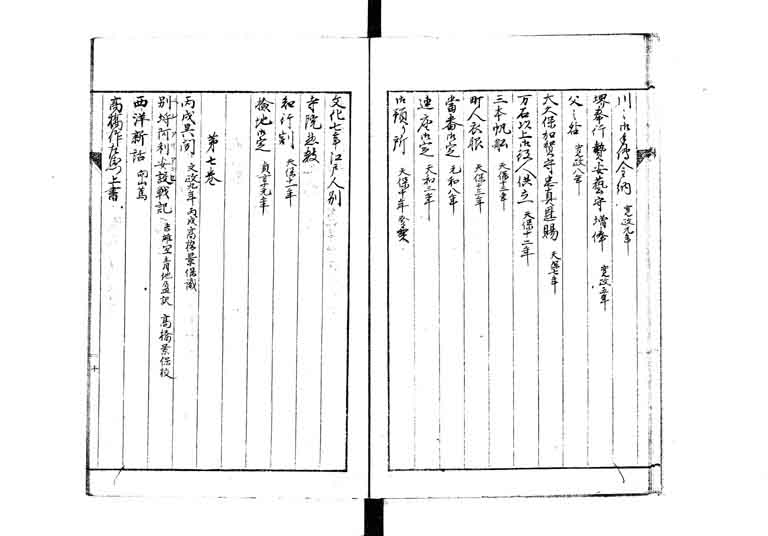 川々御手傳金納 寛政元年
堺奉行贄安藝守増俸 寛政五年
父之 寛政八年
大久保加賀守忠真恩賜 天保七年
万石以上御役人供立 天保十二年
三本帆船 天保十三年
町人衣服 天保十三年
當番御定 元和八年
連座御定 天和三年
御預り所 天保十年
文化七年江戸人別
寺院惣数
知行割 天保十一年
檢地御定 貞享元年
第七巻
丙戌異聞 文政九年丙戌高橋景保識
別埓阿利安設戦記 吉雄 青地盈訳 高橋景保校
西洋新話
高橋作左衛門上書
十